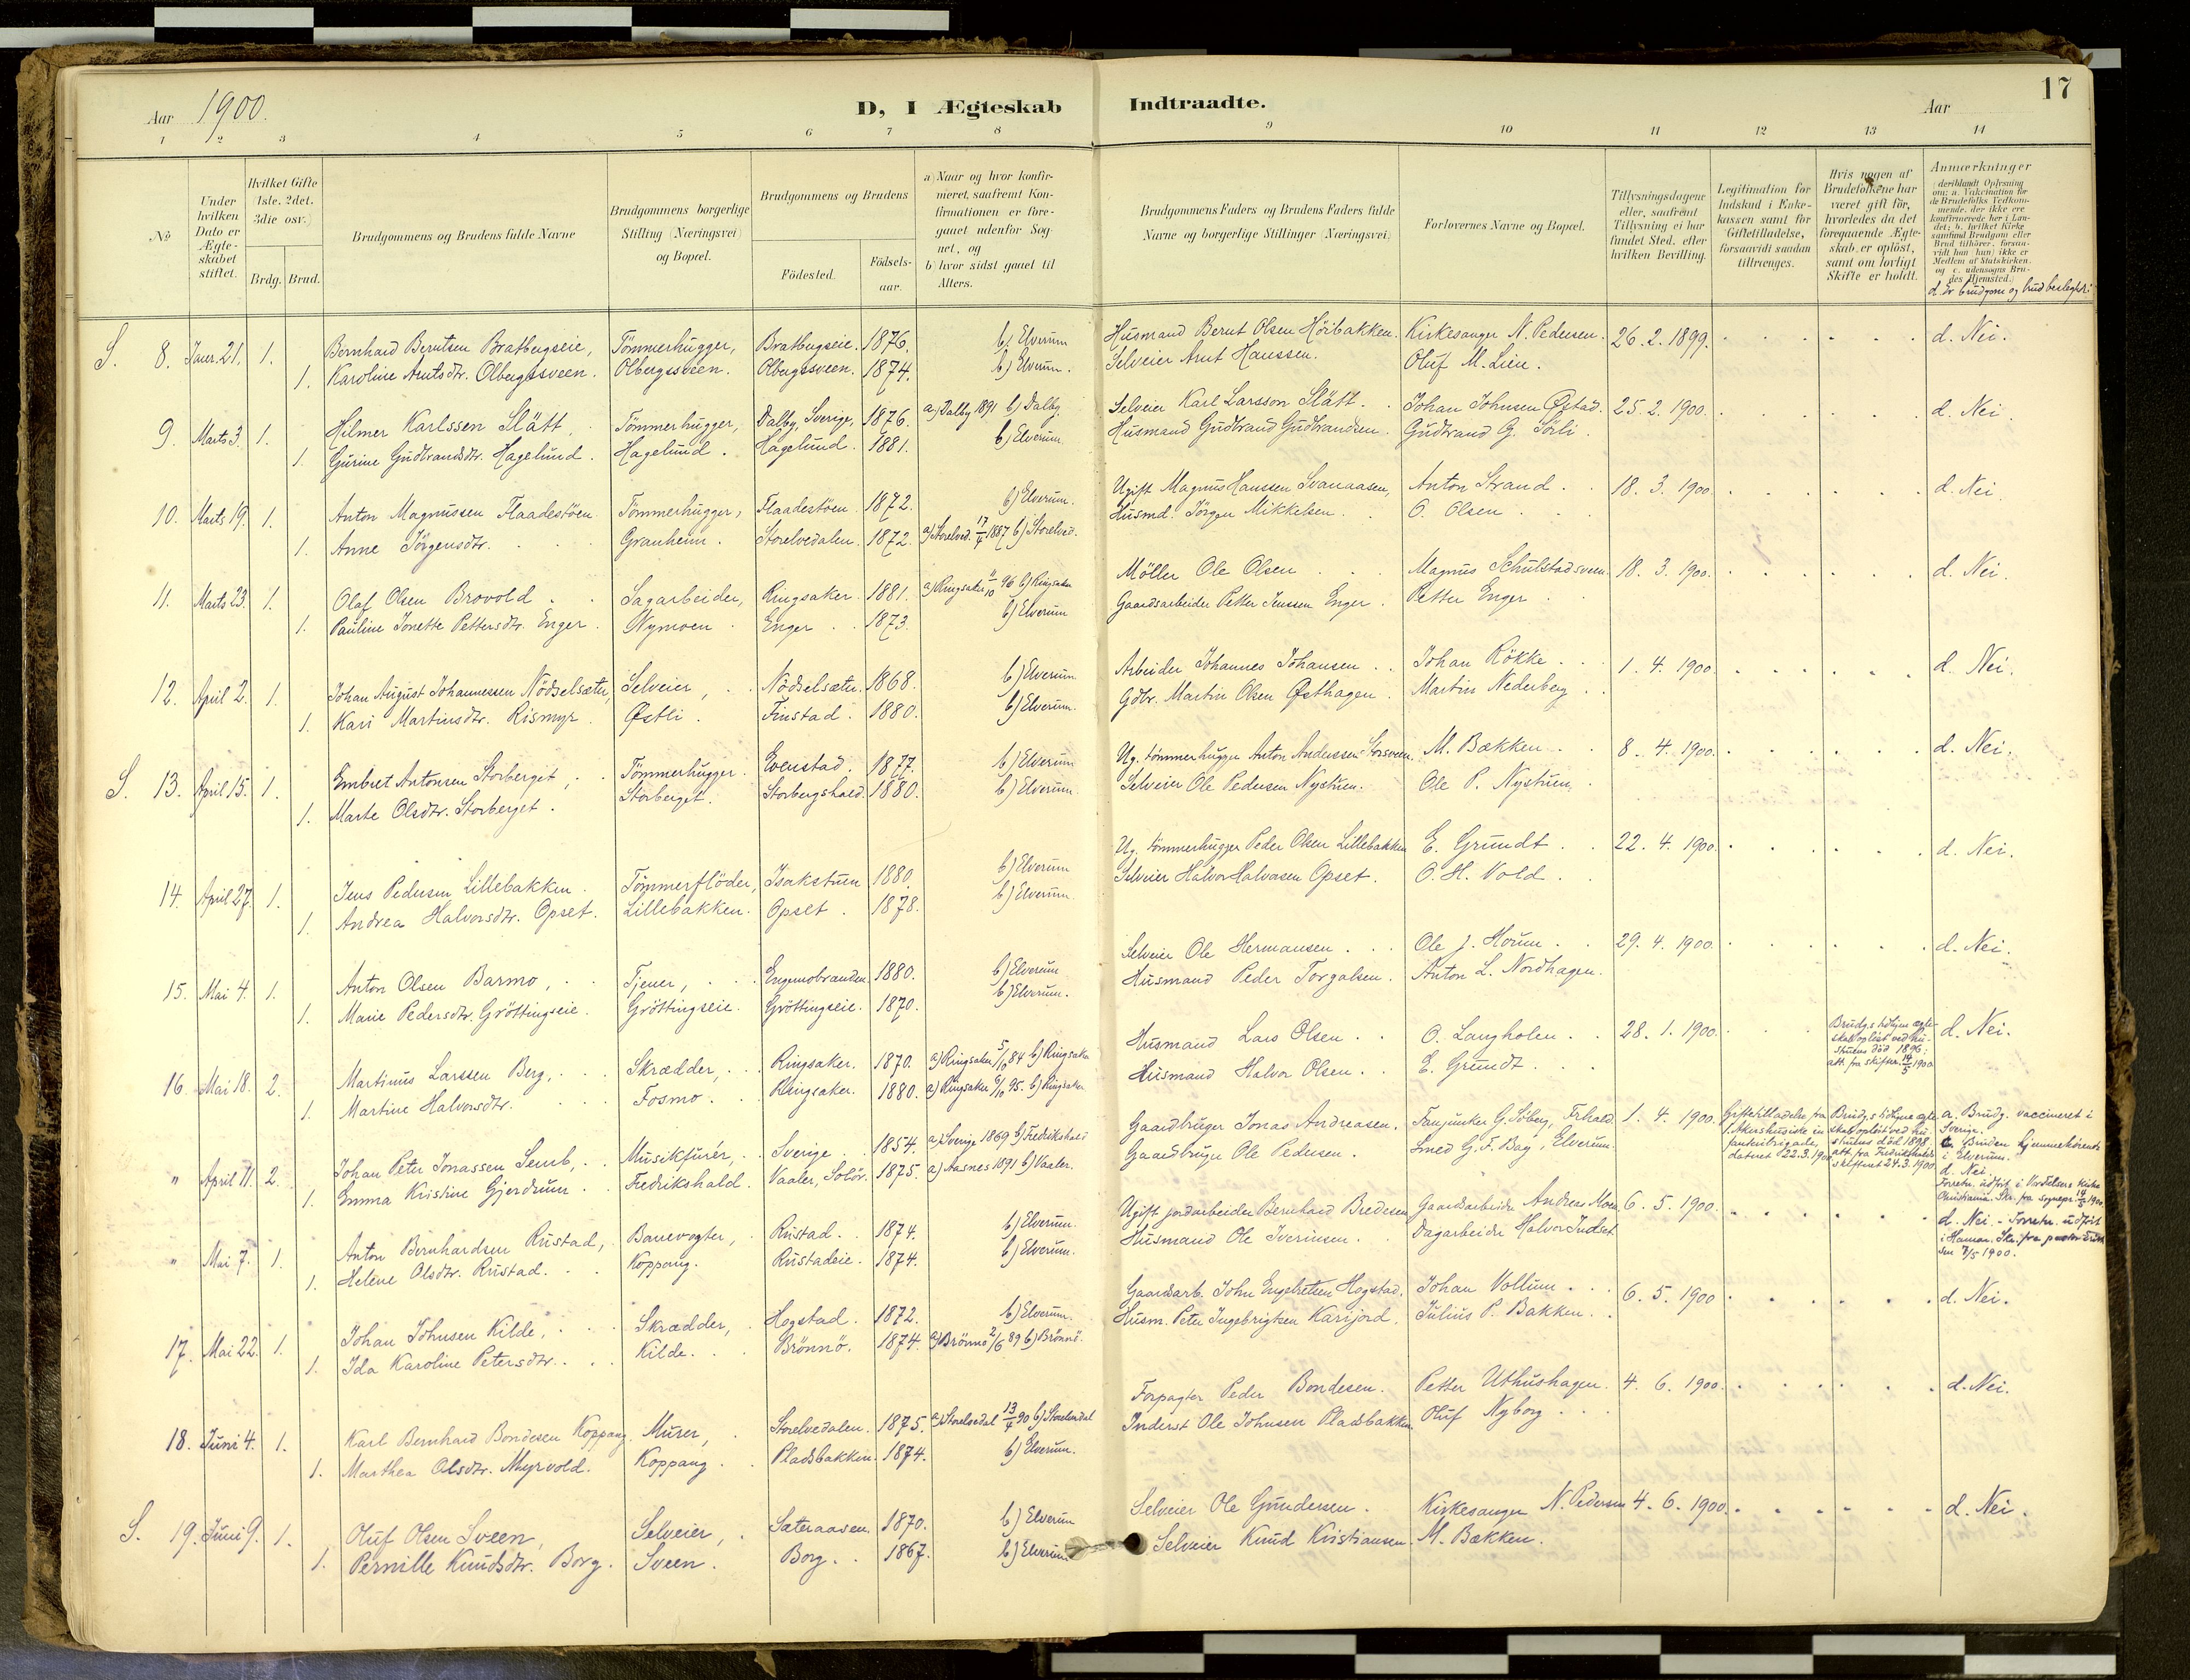 Aar 1900.
D, I Ægteskab Indtraadte.
Aar
17
1 2 3 4 5 6 7 8 9 10 11 12 13 14
№
Under hvilken Dato er Ægteskabet stiftet.
Hvilket Gifte (1ste, 2det, 3die osv.)
Brdg. Brud.
Brudgommens og Brudens fulde Navne
Brudgommens borgerlige Stilling (Næringsvei) og Bopæl.
Brudgommens og Brudens
Födested.
Födsels-aar.
a) Naar og hvor konfirmeret, saafremt Konfirmationen er foregaaet udenfor Sognet, og
b) hvor sidst gaaet til Alters.
Brudgommens Faders og Brudens Faders fulde Navne og borgerlige Stillinger (Næringsvei)
Forlovernes Navne og Bopæl.
Tillysningsdagene eller, saafremt Tillysning ei har fundet Sted, efter hvilken Bevilling.
Legitimation for Indskud i Enkekassen samt for Giftetilladelse, forsaavidt saadan tiltrænges.
Hvis nogen af Brudefolkene har været gift för, hvorledes da det foregaaende Ægteskab er oplöst, samt om lovligt Skifte er holdt.
Anmærkninger (deriblandt Oplysning om: a. Vakcination for de Brudefolks Vedkommende, der ikke ere konfirmerede her i Landet; b. hvilket Kirkesamfund Brudgom eller Brud tilhörer, forsaavidt han (hun) ikke er Medlem af Statskirken. og c. udensogns Brudes Hjemsted.)
d. Er brudgom og brud beslegtet:
S. 8. Janr. 21. 1. Bernhard Berntsen Bratbergseie, Tömmerhugger, Bratbergseie. 1876. b) Elverum Husmand Bernt Olsen Höibakken. Kirkesanger N. Pedersen. 26. 2. 1899. d. Nei.
1. Karoline Arntsdtr. Olbergssveen. Olbergssveen. Olbergssveen. 1874. b) Elverum. Selveier Arnt Hanssen. Oluf M. Lien.
9. Marts 3. 1. Hilmer Karlssen Slätt, Tömmerhugger, Dalby, Sverige, 1876. a) Dalby 1891 b) Dalby. Selveier Karl Larsson Slätt. Johan Johnsen Østad. 25. 2. 1900. d. Nei.
1. Gurine Gudbrandsdtr. Hagelund. Hagelund. Hagelund. 1881. b) Elverum. Husmand Gudbrand Gudbrandsen. Gudbrand G. Sörli.
10. Marts 19. 1. Anton Magnussen Flaadestöen. Tömmerhugger, Flaadestöen. 1872. b) Elverum. Ugift Magnus Hanssen Svanaasen, Anton Strand. 18. 3. 1900. d. Nei.
1. Anne Jörgensdtr. Granheim. Storelvedalen. 1872. a) Storelved. 17/4 1887 b) Storelved. Husmd. Jörgen Mikkelsen. O. Olsen
11. Marts 23. 1. Olaf Olsen Brovold. Sagarbeider, Ringsaker. 1881. a) Ringsaker 11/10 96 b) Ringsaker Möller Ole Olsen Magnus Schulstadsveen. 18. 3. 1900. d. Nei.
1. Pauline Jonette Pettersdtr. Enger. Nymoen. Enger 1873. b) Elverum Gaardsarbeider Petter Jenssen Enger. Petter Enger
12. April 2. 1. Johan August Johannessen Nödselsæter, Selveier, Nödselsæter. 1868. b) Elverum Arbeider Johannes Johansen. Johan Rökke. 1. 4. 1900. d. Nei.
1. Kari Martinsdtr. Rismyr. Østli. Finstad. 1880. b) Elverum. Gdbr. Martin Olsen Østhagen. Martin Nederberg
S. 13. April 15. 1. Embret Antonsen Storberget, Tömmerhugger. Evenstad. 1877. b) Elverum Ug. tömmerhugger Anton Anderssen Sorsveen. M. Bækken. 8. 4. 1900. d. Nei.
1. Marte Olsdtr. Storberget. Storberget. Storbergshold. 1880. b) Elverum. Selveier Ole Pedersen Nystuen. Ole P. Nystuen.
14. April 27. 1. Jens Pedersen Lillebakken. Tömmerflöder, Isakstuen 1880. b) Elverum Ug. tömmerhugger Peder Olsen Lillebakken E. Grundt. 22. 4. 1900. d. Nei.
1. Andrea Halvorsdtr. Opset. Lillebakken. Opset. 1878. b) Elverum. Selveier Halvor Halvorsen Opset. O. H. Vold.
15. Mai 4. 1. Anton Olsen Barmo, Tjener, Engemobranden 1880. b) Elverum Selveier Ole Hermansen. Ole J. Horum. 29. 4. 1900. d. Nei.
1. Marie Pedersdtr. Gröttingseie. Gröttingseie. Gröttingseie. 1870. b) Elverum. Husmand Peder Torgalsen. Anton L. Nordhagen.
16. Mai 18. 2. Martinus Larssen Berg, Skrædder, Ringsaker. 1870. a) Ringsaker 5/10 84 b) Ringsaker Husmand Lars Olsen. O. Langholen. 28. 1. 1900. Brudg.s tidligere ægteskab oplöst ved hustruens död 1896; att. fra skifter. 14/5 1900 d. Nei.
1. Martine Halvorsdtr. Fosmo. Ringsaker. 1880. a) Ringsaker 6/10 95. b) Ringsaker Husmand Halvor Olsen. E. Grundt.
" April 11. 2. Johan Peter Jonassen Semb, Musikfurér, Sverige. 1854. a) Sverige 1869 b) Fredrikshald Gaardbruger Jonas Andreasen. Fanjunker G. Söberg, Frhald. 1. 4. 1900. Giftetilladelse fra 1. Akershusiske infanteribrigade, datert 22.3.1900 Brudg.s tidligere ægteskab oplöst ved hustruens död 1898, att. fra Fredrikshalds skifteret 24.3.1900. a. Brudg. vaccineret i Sverige. c. Bruden hjemmehörende i Elverum. d. Nei. Forretn. udfört i Vor Frelsers kirke Christiania. Skr. fra sognepr. 14/5 1900
1. Emma Kristine Gjerdrum. Fredrikshald. Vaaler, Solör. 1875. a) Aasnes 1891 b) Vaaler. Gaardbruger Ole Pedersen. Smed G. F. Bay, Elverum.
" Mai 7. 1. Anton Bernhardsen Rustad, Banevogter, Rustad. 1874. b) Elverum. Ugift jordarbeider Bernhard Bredesen Gaardarbeider Andreas Moen 6. 5. 1900. d. Nei. - Forretn. udfört i Hamar. Skr. fra pastor 7/5 1900.
1. Helene Olsdtr. Rustad. Koppang. Rustadeie. 1874. b) Elverum. Husmand Ole Iversen. Dagarbeider Halvor Indset
17. Mai 22. 1. Johan Johnsen Kilde, Skrædder, Hogstad. 1872. b) Elverum. Gaardsarb. John Engebretsen Hogstad. Johan Vollum. 6. 5. 1900 d. Nei.
1. Ida Karoline Petersdtr. Kilde. Brönnö. 1874. a) Brönnö 2/6 89 b) Brönnö. Husm. Peter Ingebrigtsen Karijord. Julius P. Bakken.
18. Juni 4. 1. Karl Bernhard Bondesen Koppang. Murer, Storelvedalen. 1875. a) Storelvedal 13/4 90 b) Storelvedal Forpagter Peder Bondesen. Petter Uthushagen. 4. 6. 1900. d. Nei.
1. Marthea Olsdtr. Myrvold. Koppang. Pladsbakken. 1874. b) Elverum. Inderst Ole Johnsen Pladsbakken Oluf Nyborg
S. 19. Juni 9. 1. Oluf Olsen Sveen, Selveier, Sateraasen 1870. b) Elverum Selveier Ole Gundersen. Kirkesanger N. Pedersen 4. 6. 1900. d. Nei.
1. Pernille Knudsdtr. Borg. Sveen. Borg. 1867. b) Elverum Selveier Knud Kristiansen. M. Bækken.